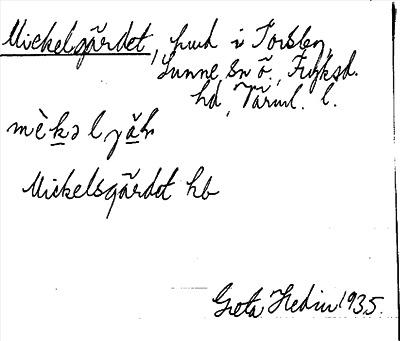 Mickelgårdet, hmd i Torsby,
Sunne sn ö., Fryksd.
hd, Värml. l.
mè̀kəlgäh
Mickelsgårdet hb
Greta Hedin 1935.